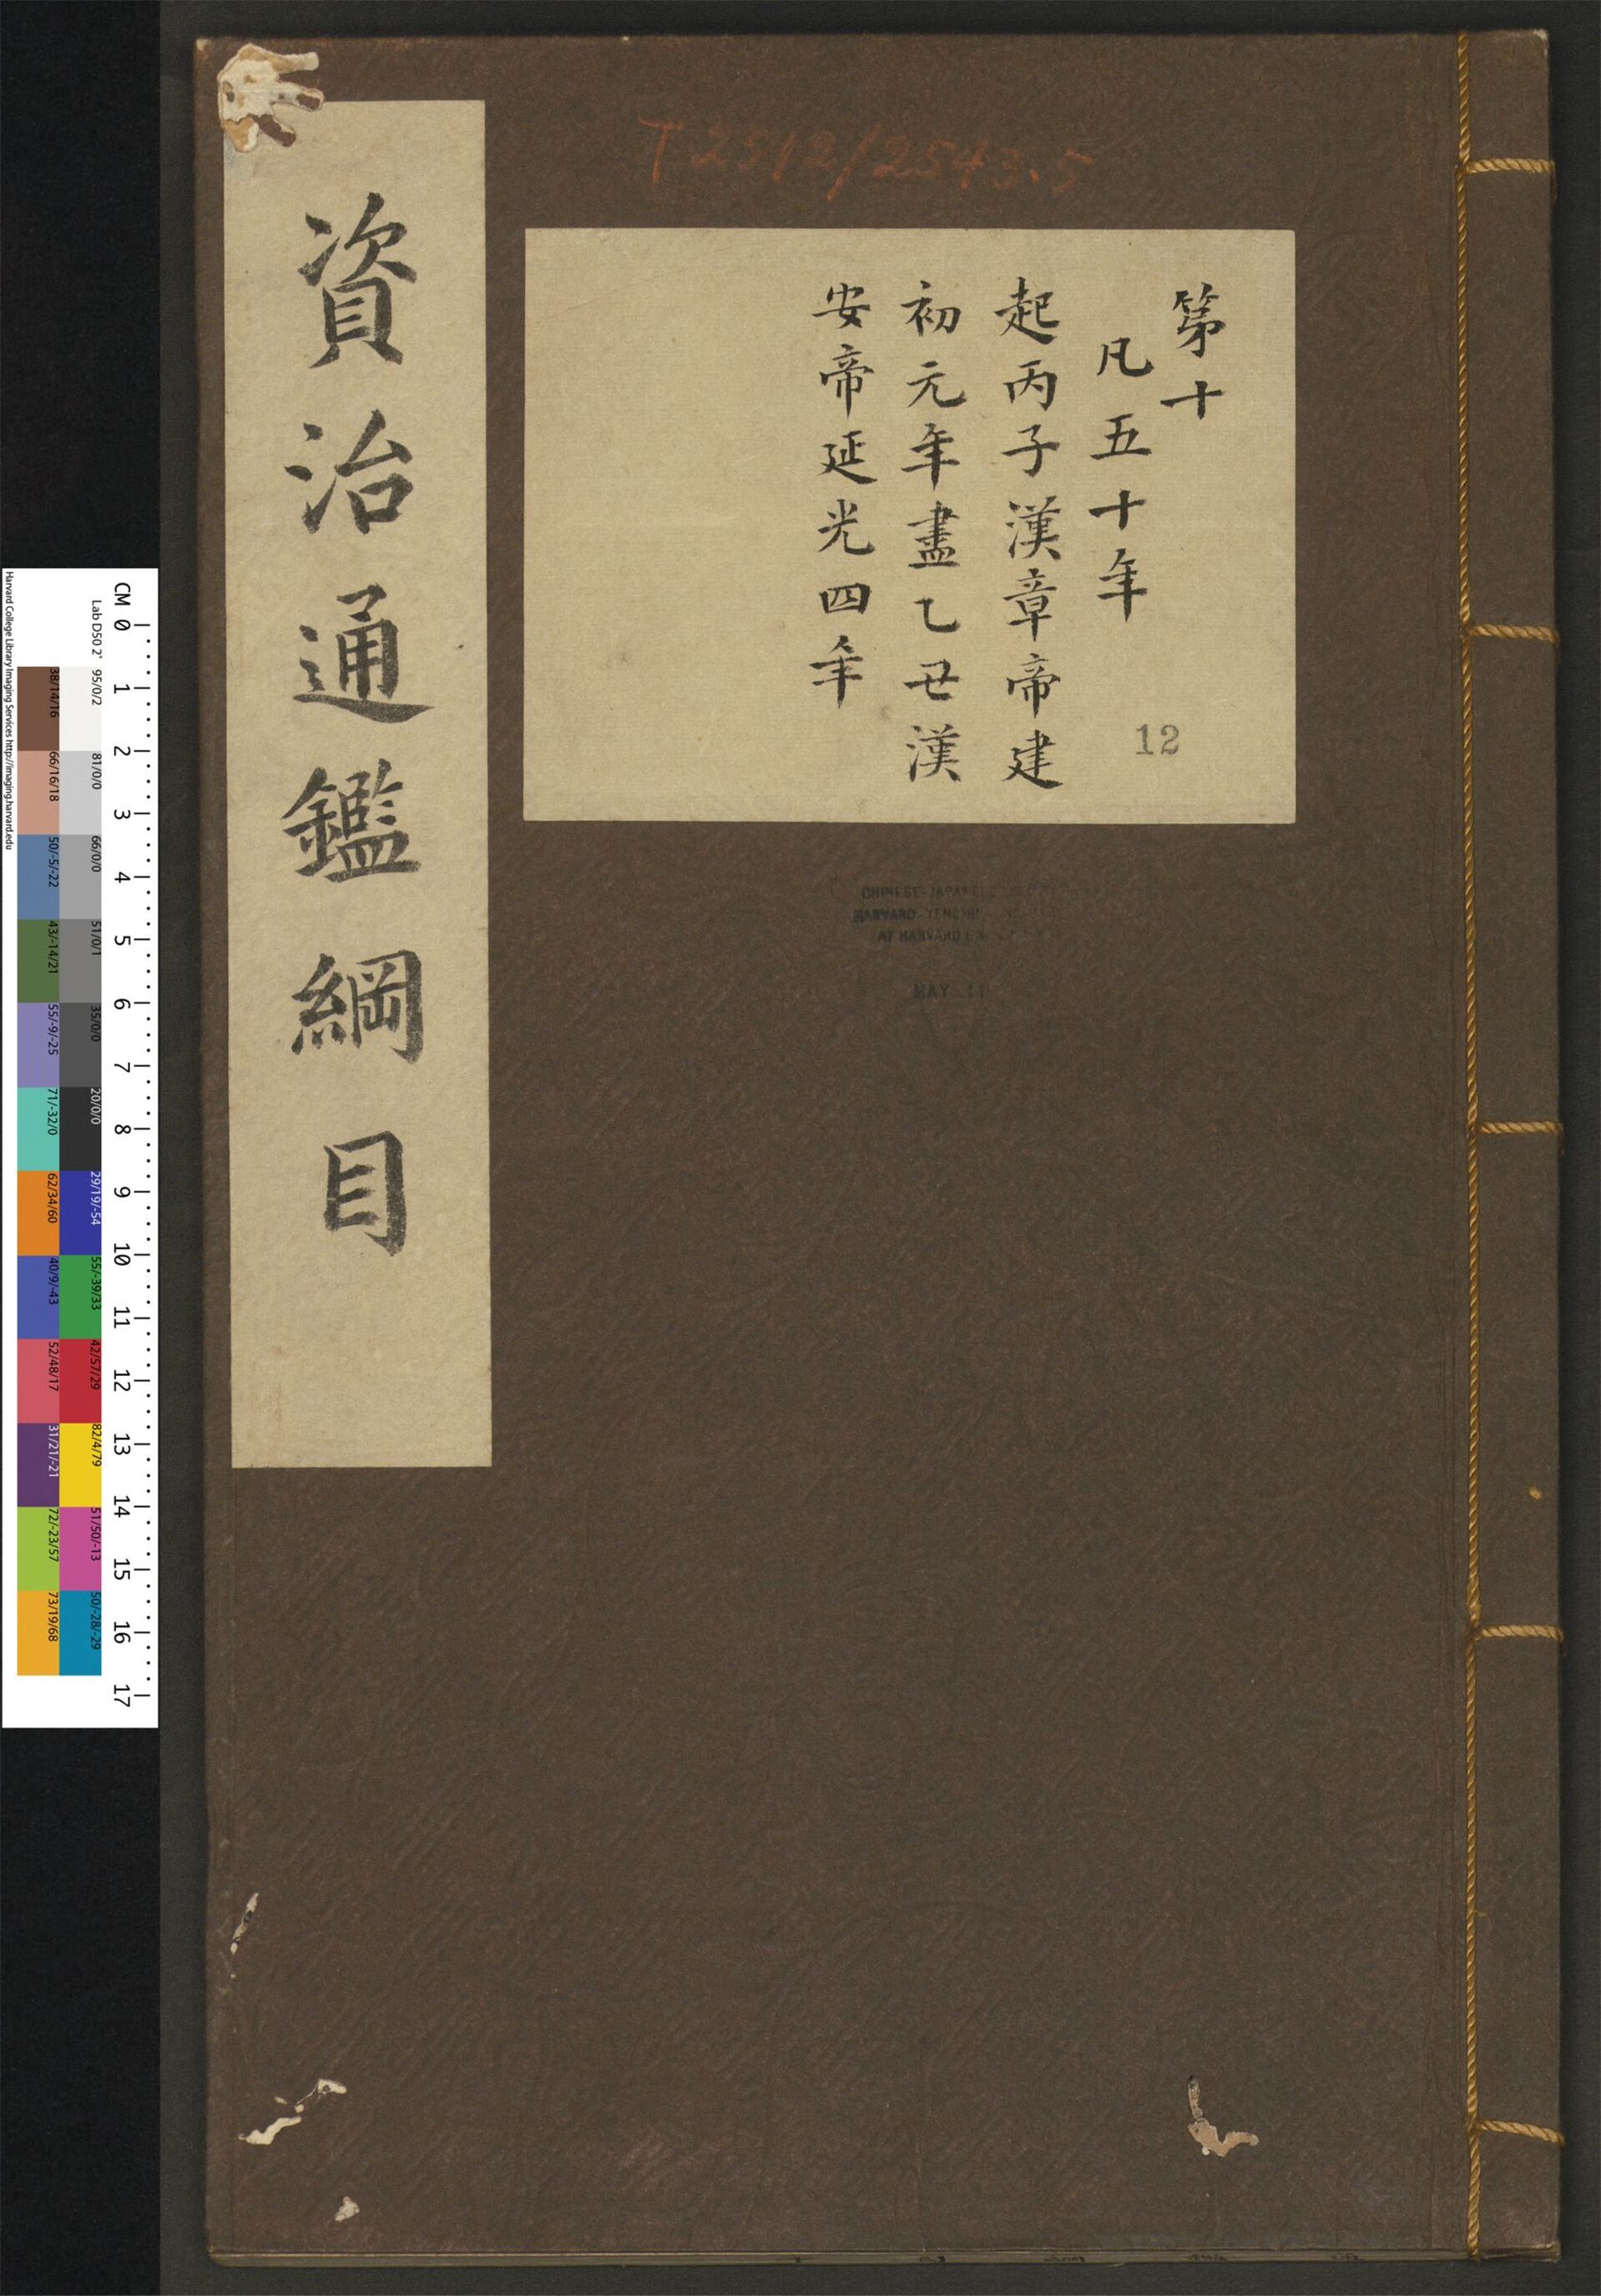 T 2512/2543.5
第十
凡五十年
起丙子漢章帝建
初元年盡乙丑漢
安帝延光四年
12
資治通鑑綱目
CHINESE-JAPANESE
HARVARD-YENCHING
AT HARVARD
MAY 11
CM 0 1 2 3 4 5 6 7 8 9 10 11 12 13 14 15 16 17
Lab D50 2° 95/0/2 81/0/0 66/0/0 51/0/1 35/0/0 20/0/0 29/19/-54 55/-39/33 42/57/29 82/4/79 51/50/-13 50/-28/-29
38/14/16 66/16/18 50/-5/-22 43/-14/21 55/-9/-25 71/-32/0 62/34/60 40/9/-43 52/48/17 31/21/-21 72/-23/57 73/19/68
Harvard College Library Imaging Services http://imaging.harvard.edu